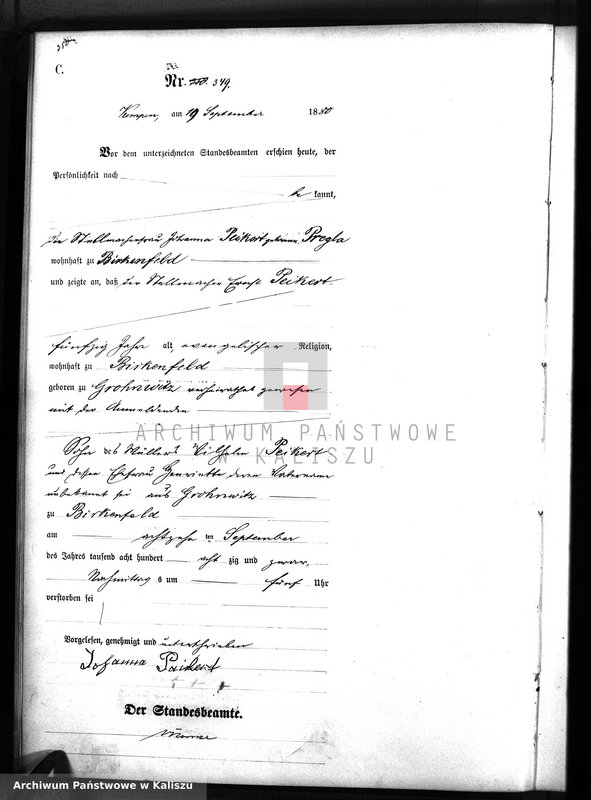 C.
Nr. 349.
Kempen, am 19 September 1880
Vor dem unterzeichneten Standesbeamten erschien heute, der
Persönlichkeit nach
be kannt,
die Stellmacherfrau Johanna Peikert geborne Progla
wohnhaft zu Birkenfeld
und zeigte an, daß der Stellmacher Ernst Peikert
fünfzig Jahre alt, evangelischer Religion,
wohnhaft zu Birkenfeld
geboren zu Grohnwitz verheirathet gewesen
mit der Anmeldenden
ARCHIWUM PAŃSTWOWE
W KALISZU
Sohn des Müllers Wilhelm Peikert
und dessen Ehefrau Henriette deren Vatername
unbekannt sei aus Grohnwitz
zu Birkenfeld
am achtzehn ten September
des Jahres tausend acht hundert acht zig und zwar,
Nachmittag s um fünf Uhr
verstorben sei
Vorgelesen, genehmigt und unterschrieben
Johanna Peikert
Der Standesbeamte.
Archiwum Państwowe w Kaliszu